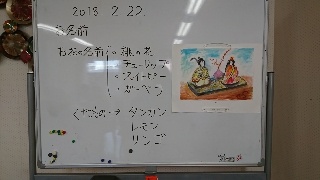 2018 2.22.
お名前
お花の名前 ・桃の花
・チューリップ
・スイートピー
・ガーベラ
くだもの → タンカン
レモン
リンゴ